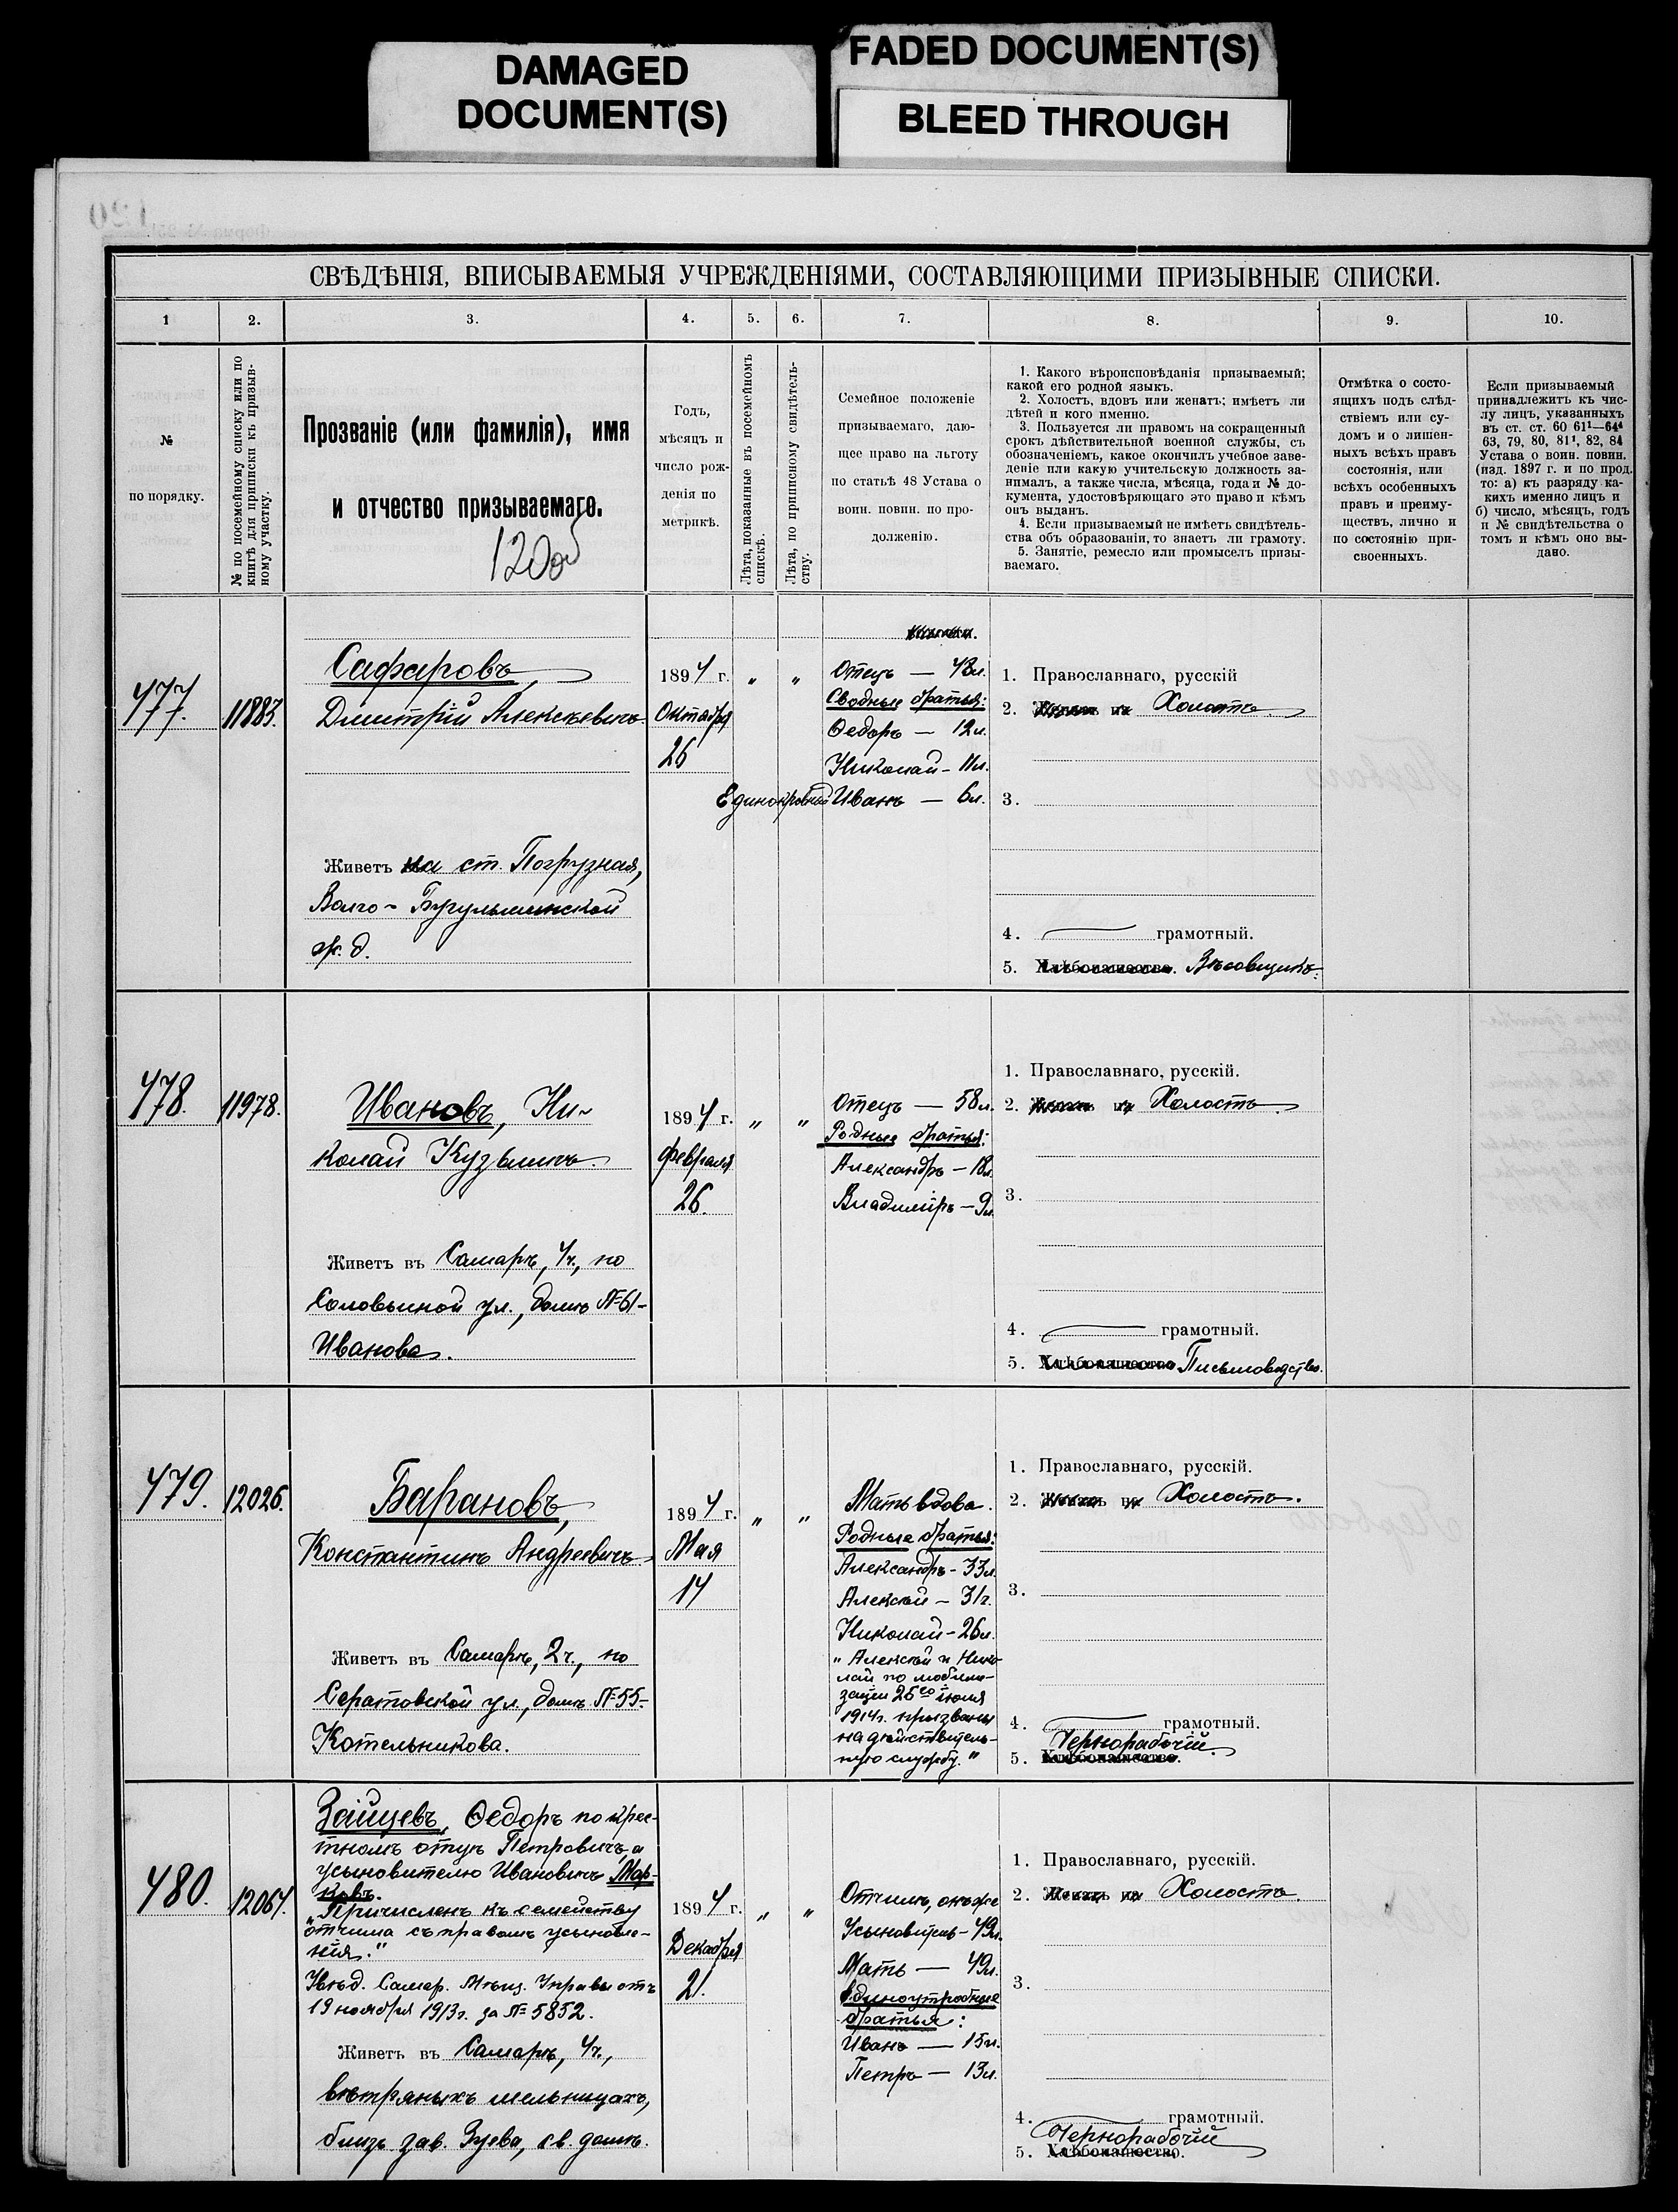 DAMAGED
DOCUMENT(S)
FADED DOCUMENT(S)
BLEED THROUGH
СВѢДѢНІЯ, ВПИСЫВАЕМЫЯ УЧРЕЖДЕНІЯМИ, СОСТАВЛЯЮЩИМИ ПРИЗЫВНЫЕ СПИСКИ.
1
2.
3.
4.
5.
6.
7.
8.
9.
10.
№
по порядку.
№ по посемейному списку или по
книгѣ для приписки къ призыв-
ному участку.
Прозваніе (или фамилія), имя
и отчество призываемаго.
120об
Годъ,
мѣсяцъ и
число рож-
денія по
метрикѣ.
Лѣта, показанные въ посемейномъ
спискѣ.
Лѣта, по приписному свидѣтель-
ству.
Семейное положеніе
призываемаго, даю-
щее право на льготу
по статьѣ 48 Устава о
воин. повин. по про-
долженію.
1. Какого вѣроисповѣданія призываемый;
какой его родной языкъ.
2. Холостъ, вдовъ или женатъ; имѣетъ ли
дѣтей и кого именно.
3. Пользуется ли правомъ на сокращенный
срокъ дѣйствительной военной службы, съ
обозначеніемъ, какое окончилъ учебное заве-
деніе или какую учительскую должность за-
нималъ, а также числа, мѣсяца, года и № до-
кумента, удостовѣряющаго это право и кѣмъ
онъ выданъ.
4. Если призываемый не имѣетъ свидѣтель-
ства объ образованіи, то знаетъ ли грамоту.
5. Занятіе, ремесло или промыселъ призы-
ваемаго.
Отмѣтка о состо-
ящихъ подъ слѣд-
ствіемъ или су-
домъ и о лишен-
ныхъ всѣхъ правъ
состоянія, или
всѣхъ особенныхъ
правъ и преиму-
ществъ, лично и
по состоянію при-
своенныхъ.
Если призываемый
принадлежитъ къ чис-
лу лицъ, указанныхъ
въ ст. ст. 60 61¹—64⁴
63, 79, 80, 81¹, 82, 84
Устава о воин. повин.
(изд. 1897 г. и по прод.
то: а) къ разряду ка-
кихъ именно лицъ и
б) число, мѣсяцъ, годъ
и № свидѣтельства о
томъ и кѣмъ оно вы-
дано.
477.
11883.
Сафаровъ,
Дмитрій Алексѣевичъ.
Живетъ на ст. Погрузная,
Волго-Бугульминской
ж. д.
1894 г.
Октября
26
" "
Отецъ — 48л.
Сводные братья:
Ѳедоръ — 12л.
Николай — 11л.
Единокровный Иванъ — 6л.
1. Православнаго, русскій
2. Холостъ.
3.
4. грамотный.
5. Хлѣбопашество. Вѣсовщикъ.
478.
11978.
Ивановъ, Ни-
колай Кузьмичъ.
Живетъ въ Самарѣ, 4ч., по
Соловьиной ул., домъ №61-
Иванова.
1894 г.
Февраля
26.
" "
Отецъ — 58л.
Родные братья:
Александръ — 18л.
Владиміръ — 9л.
1. Православнаго, русскій.
2. Холостъ.
3.
4. грамотный.
5. Хлѣбопашество Письмоводство.
479.
12026.
Барановъ,
Константинъ Андреевичъ.
Живетъ въ Самарѣ, 2ч., по
Саратовской ул., домъ №55-
Котельникова.
1894 г.
Мая
14
" "
Мать вдова.
Родные братья:
Александръ - 33л.
Алексѣй — 31г.
Николай — 26л.
"Алексѣй и Нико-
лай по мобили-
заціи 25го іюля
1914г. призваны
на дѣйствитель-
ную службу."
1. Православнаго, русскій.
2. Холостъ.
3.
4. грамотный.
Чернорабочій.
5. Хлѣбопашество.
480.
12064.
Зайцевъ, Ѳедоръ по крес-
тномъ отцѣ Петровичъ, а
усыновителю Ивановичъ Мар-
ковъ.
"Причисленъ къ семейству
отчима съ правомъ усыновле-
нія."
Увѣд. Самар. Мѣщ. Управы отъ
19 ноября 1913г. за № 5852.
Живетъ въ Самарѣ, 4ч.,
вѣтряныхъ мельницахъ,
близь зав. Зуева, св. домъ.
1894 г.
Декабря
21.
" "
Отчимъ, онъ же
Усыновитель — 49л.
Мать — 49л.
Единоутробные
братья:
Иванъ — 15л.
Петръ — 13л.
1. Православнаго, русскій.
2. Холостъ.
3.
4. грамотный.
Чернорабочій
5. Хлѣбопашество.